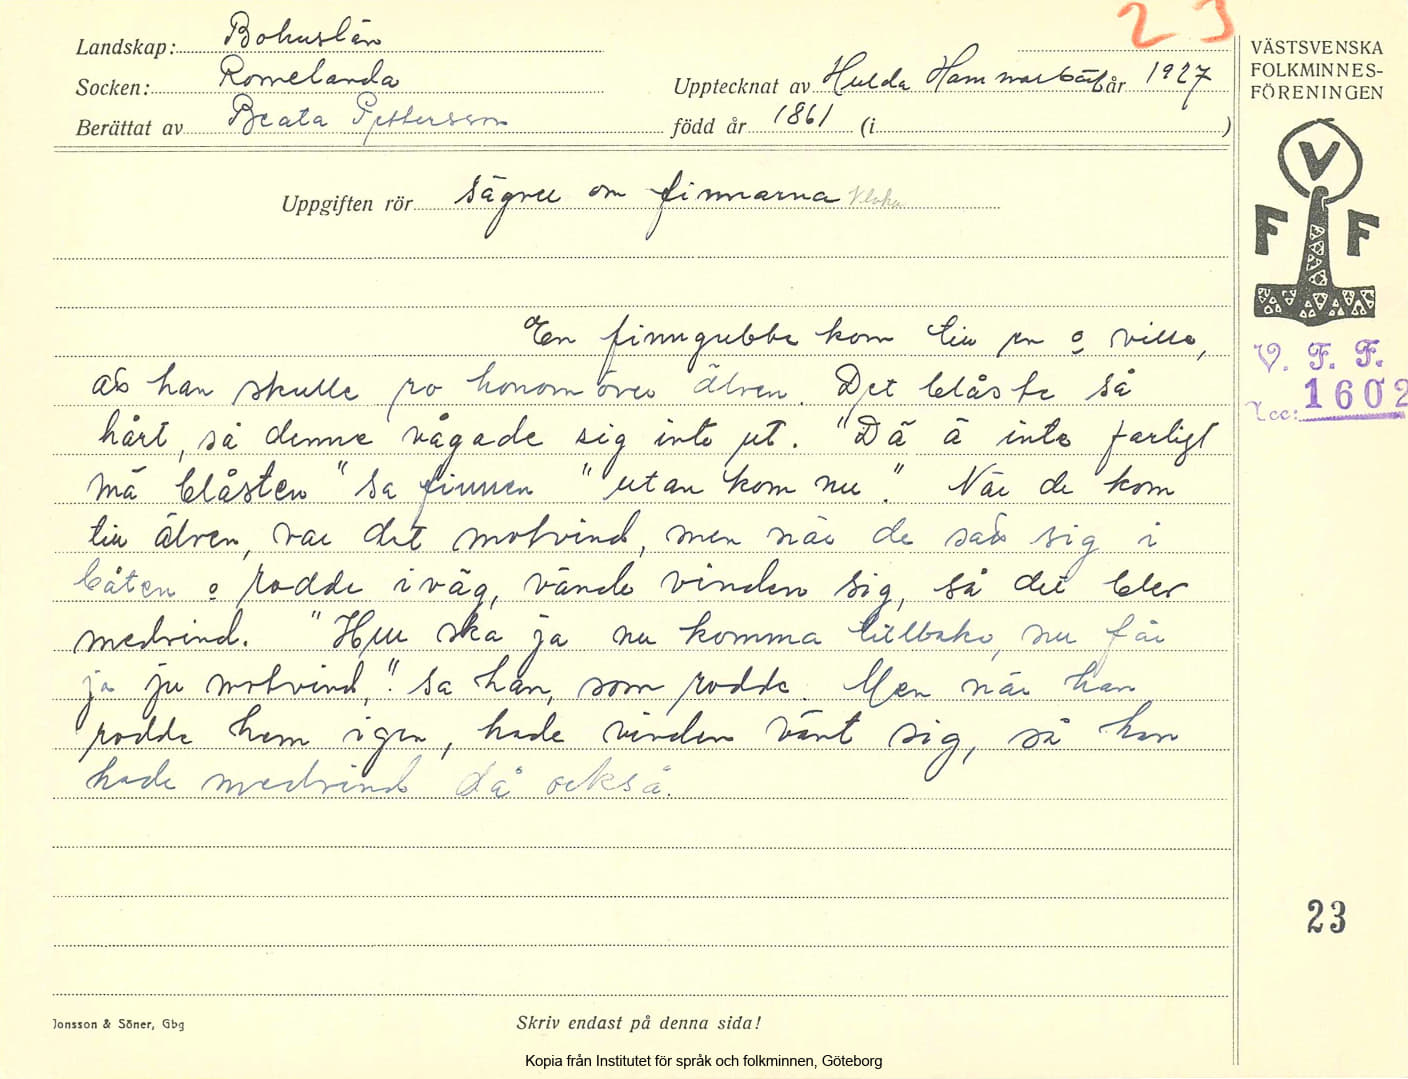 23
Landskap: Bohuslän
Socken: Romelanda
Upptecknat av Hulda Hammarbäck år 1927
Berättat av Beata Pettersson född år 1861 (i )
Uppgiften rör sägner om finnarna
En finngubbe kom till en o ville,
att han skulle ro honom över älven. Det blåste så
hårt, så denne vågade sig inte ut. "Dä ä inte farligt
mä blåsten" sa finnen "utan kom nu". När de kom
till älven, var det motvind, men när de satt sig i
båten o rodde iväg, vände vinden sig, så det blev
medvind. "Hur ska ja nu komma tillbaka, nu får
ja ju motvind," sa han, som rodde. Men när han
rodde hem igen, hade vinden vänt sig, så han
hade medvind då också.
VÄSTSVENSKA
FOLKMINNES-
FÖRENINGEN
V
F F
V. F. F.
Acc: 1602
23
Jonsson & Söner, Gbg
Skriv endast på denna sida!
Kopia från Institutet för språk och folkminnen, Göteborg